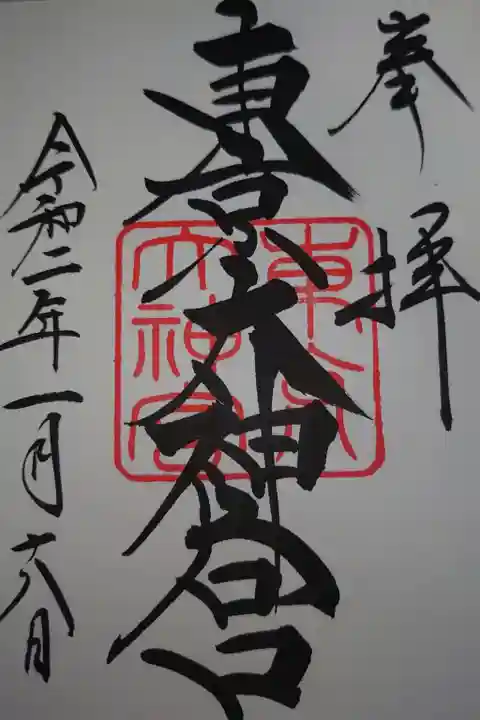 奉拝
東京大神宮
東京
大神宮
令和二年一月十八日